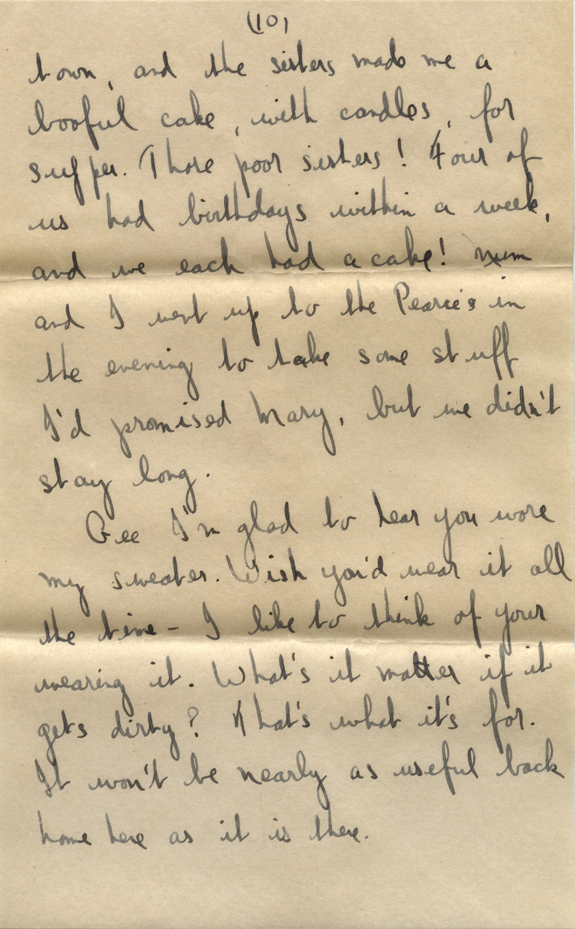 (10)
town, and the sisters made me a
booful cake, with candles, for
supper. Those poor sisters! Four of
us had birthdays within a week,
and we each had a cake! Mum
and I went up to the Pearce's in
the evening to take some stuff
I'd promised Mary, but we didn't
stay long.
Gee I'm glad to hear you wore
my sweater. Wish you'd wear it all
the time - I like to think of your
wearing it. What's it matter if it
gets dirty? That's what it's for.
It won't be nearly as useful back
home here as it is there.